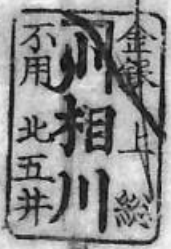 金銀 上総
相川
不用 北五井